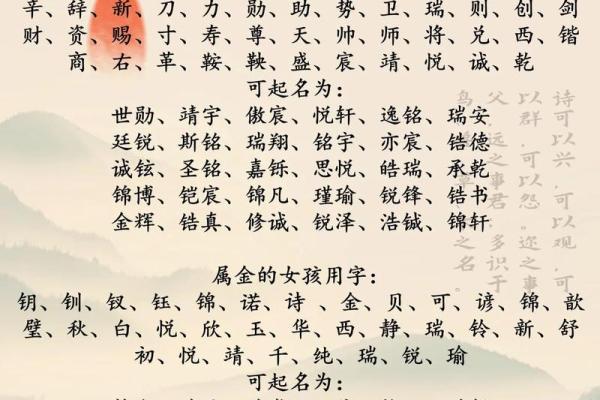 辛、辞、新、刀、力、勋、助、势、卫、瑞、则、创、剑
财、资、赐、寸、寿、尊、天、帅、师、将、兑、西、锴
商、右、革、鞍、鞅、盛、宸、靖、悦、诚、乾
可起名为：
世勋、靖宇、傲宸、悦轩、逸铭、瑞安
廷锐、斯铭、瑞翔、铭宇、亦宸、锆德
诚铉、圣铭、嘉铄、思悦、皓瑞、承乾
锦博、铠宸、锦凡、瑾瑜、锐锋、锆书
金辉、锆真、修诚、锐泽、浩铖、锦轩
属金的女孩用字：
钥、钏、钗、钰、锦、诺、诗、金、贝、可、谚、锦、歆
璧、秋、白、悦、欣、玉、华、西、静、瑞、铃、新、舒
初、悦、靖、千、纯、瑞、锐、瑜
可起名为：
诗可以兴，可以观，可
以群，可以怨。迩之事
父，远之事君；多识于
鸟兽草木之名。